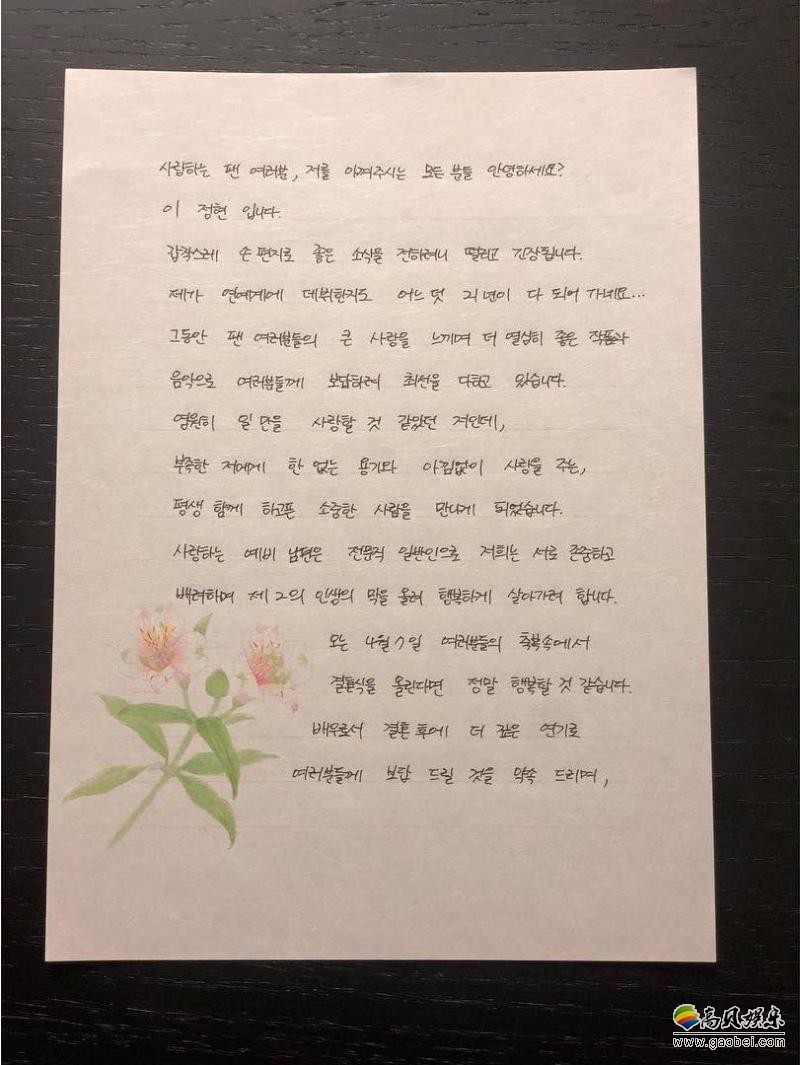 사랑하는 팬 여러분, 저를 아껴주시는 모든 분들 안녕하세요?
이 정현 입니다.
갑작스레 손 편지로 좋은 소식을 전하려니 떨리고 긴장됩니다.
제가 연예계에 데뷔한지도 어느 덧 21년이 다 되어 가네요...
그동안 팬 여러분들의 큰 사랑을 느끼며 더 열심히 좋은 작품과
음악으로 여러분들께 보답하려 최선을 다하고 있습니다.
영원히 일 만을 사랑할 것 같았던 저인데,
부족한 저에게 한 없는 용기와 아낌없이 사랑을 주는,
평생 함께 하고픈 소중한 사람을 만나게 되었습니다.
사랑하는 예비 남편은 전문직 일반인으로 저희는 서로 존중하고
배려하며 제 2의 인생의 막을 올려 행복하게 살아가려 합니다.
오는 4월 7일 여러분들의 축복속에서
결혼식을 올린다면 정말 행복할 것 같습니다.
배우로서 결혼 후에 더 깊은 연기로
여러분들께 보답 드릴 것을 약속 드리며,
高贝娱乐
www.gaobei.com